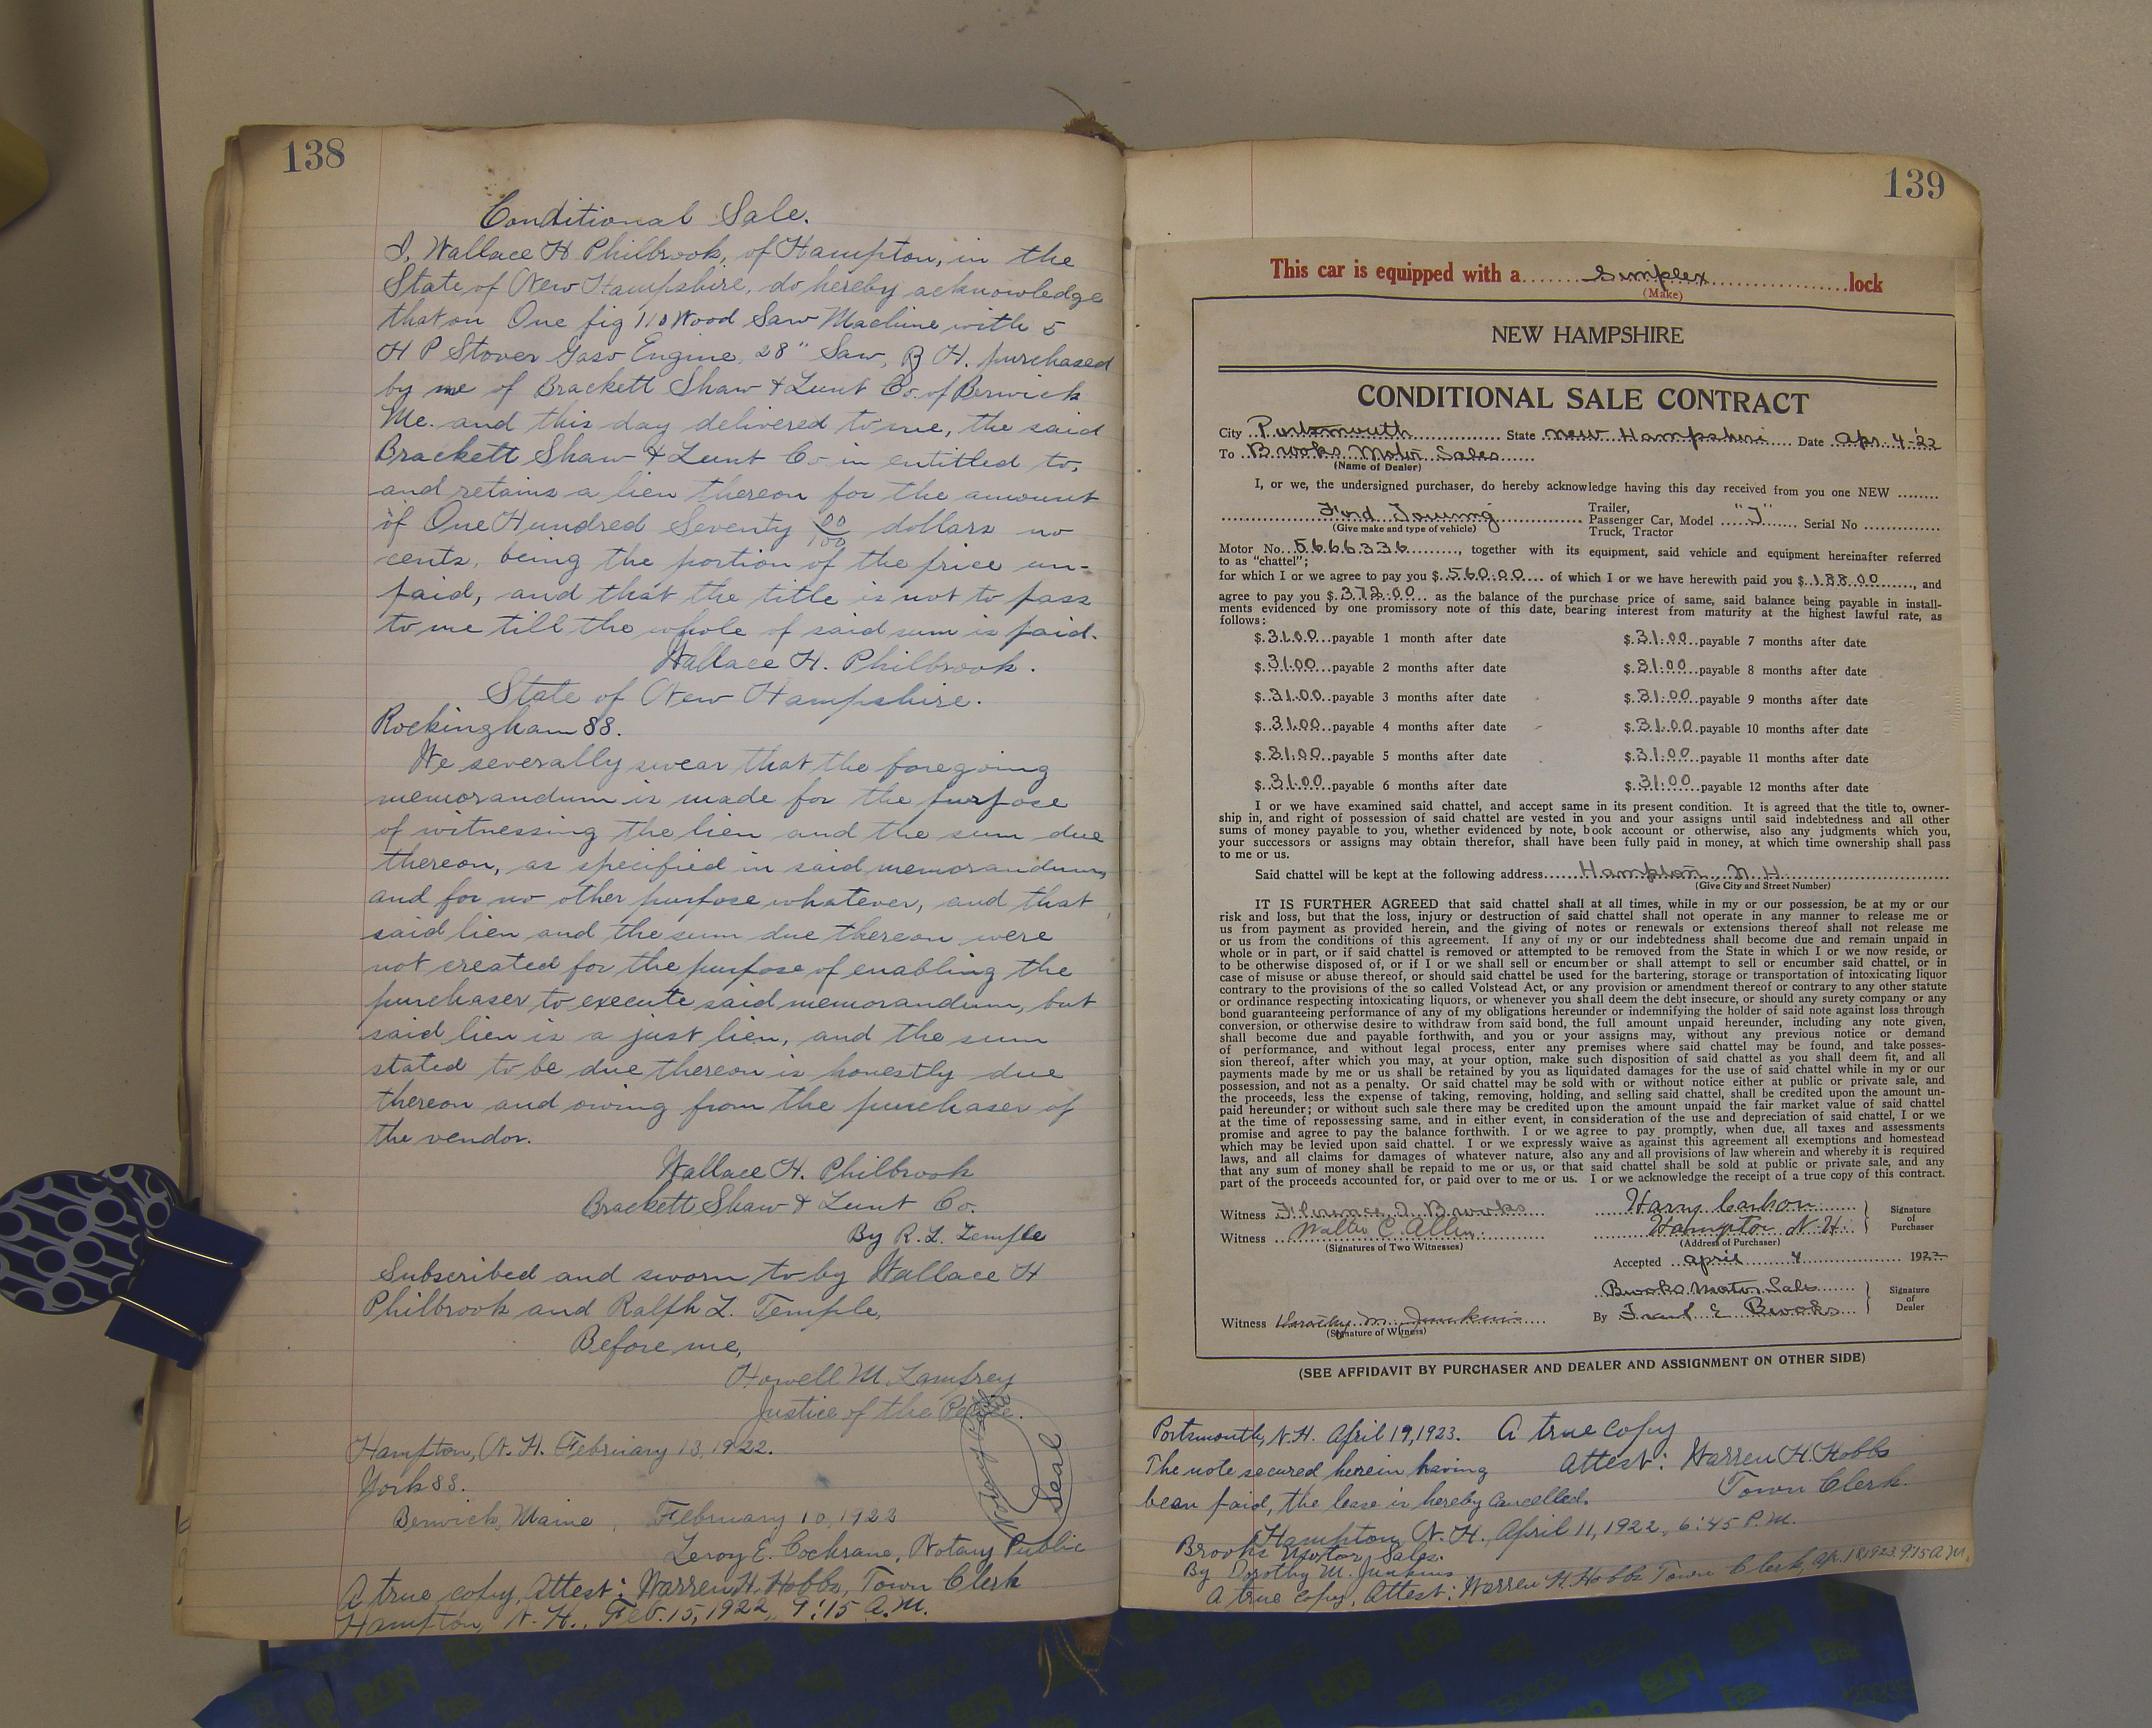 138
Conditional Sale.
I, Wallace H Philbrook, of Hampton, in the
State of New Hampshire, do hereby acknowledge
that on One fig 110 Wood Saw Machine with 5
H P Stover Gaso Engine, 28" Saw, R H. purchased
by me of Brackett Shaw & Lunt Co. of Berwick
Me. and this day delivered to me, the said
Brackett Shaw & Lunt Co in entitled to,
and retains a lien thereon for the amount
of One Hundred Seventy 00/100 dollars no
cents, being the portion of the price un-
paid, and that the title is not to pass
to me till the whole of said sum is paid.
Wallace H. Philbrook.
State of New Hampshire.
Rockingham SS.
We severally swear that the foregoing
memorandum is made for the purpose
of witnessing the lien and the sum due
thereon, as specified in said memorandum,
and for no other purpose whatever, and that
said lien and the sum due thereon were
not created for the purpose of enabling the
purchaser to execute said memorandum, but
said lien is a just lien, and the sum
stated to be due thereon is honestly due
thereon and owing from the purchaser of
the vendor.
Wallace H. Philbrook
Brackett Shaw & Lunt Co.
By R. L. Temple
Subscribed and sworn to by Wallace H
Philbrook and Ralph L. Temple,
Before me,
Howell M. Lamprey
Justice of the Peace.
Hampton, N. H. February 13, 1922.
York SS.
Berwick, Maine, February 10, 1922
Leroy E. Cochrane, Notary Public
Notary Public Seal
A true copy, Attest: Warren H. Hobbs, Town Clerk
Hampton, N. H., Feb. 15, 1922, 9:15 A.M.
139
This car is equipped with a Simplex lock
(Make)
NEW HAMPSHIRE
CONDITIONAL SALE CONTRACT
City Portsmouth State New Hampshire Date Apr. 4-'22
To Brooks Motor Sales
(Name of Dealer)
I, or we, the undersigned purchaser, do hereby acknowledge having this day received from you one NEW ........
Ford Touring
(Give make and type of vehicle)
Trailer,
Passenger Car, Model "T" Serial No
Truck, Tractor
Motor No. 5666336, together with its equipment, said vehicle and equipment hereinafter referred
to as "chattel";
for which I or we agree to pay you $ 560.00 of which I or we have herewith paid you $ 188.00, and
agree to pay you $ 372.00 as the balance of the purchase price of same, said balance being payable in install-
ments evidenced by one promissory note of this date, bearing interest from maturity at the highest lawful rate, as
follows:
$ 31.00 payable 1 month after date $ 31.00 payable 7 months after date
$ 31.00 payable 2 months after date $ 31.00 payable 8 months after date
$ 31.00 payable 3 months after date $ 31.00 payable 9 months after date
$ 31.00 payable 4 months after date $ 31.00 payable 10 months after date
$ 31.00 payable 5 months after date $ 31.00 payable 11 months after date
$ 31.00 payable 6 months after date $ 31.00 payable 12 months after date
I or we have examined said chattel, and accept same in its present condition. It is agreed that the title to, owner-
ship in, and right of possession of said chattel are vested in you and your assigns until said indebtedness and all other
sums of money payable to you, whether evidenced by note, book account or otherwise, also any judgments which you,
your successors or assigns may obtain therefor, shall have been fully paid in money, at which time ownership shall pass
to me or us.
Said chattel will be kept at the following address Hampton N. H.
(Give City and Street Number)
IT IS FURTHER AGREED that said chattel shall at all times, while in my or our possession, be at my or our
risk and loss, but that the loss, injury or destruction of said chattel shall not operate in any manner to release me or
us from payment as provided herein, and the giving of notes or renewals or extensions thereof shall not release me
or us from the conditions of this agreement. If any of my or our indebtedness shall become due and remain unpaid in
whole or in part, or if said chattel is removed or attempted to be removed from the State in which I or we now reside, or
to be otherwise disposed of, or if I or we shall sell or encumber or shall attempt to sell or encumber said chattel, or in
case of misuse or abuse thereof, or should said chattel be used for the bartering, storage or transportation of intoxicating liquor
contrary to the provisions of the so called Volstead Act, or any provision or amendment thereof or contrary to any other statute
or ordinance respecting intoxicating liquors, or whenever you shall deem the debt insecure, or should any surety company or any
bond guaranteeing performance of any of my obligations hereunder or indemnifying the holder of said note against loss through
conversion, or otherwise desire to withdraw from said bond, the full amount unpaid hereunder, including any note given,
shall become due and payable forthwith, and you or your assigns may, without any previous notice or demand
of performance, and without legal process, enter any premises where said chattel may be found, and take posses-
sion thereof, after which you may, at your option, make such disposition of said chattel as you shall deem fit, and all
payments made by me or us shall be retained by you as liquidated damages for the use of said chattel while in my or our
possession, and not as a penalty. Or said chattel may be sold with or without notice either at public or private sale, and
the proceeds, less the expense of taking, removing, holding, and selling said chattel, shall be credited upon the amount un-
paid hereunder; or without such sale there may be credited upon the amount unpaid the fair market value of said chattel
at the time of repossessing same, and in either event, in consideration of the use and depreciation of said chattel, I or we
promise and agree to pay the balance forthwith. I or we agree to pay promptly, when due, all taxes and assessments
which may be levied upon said chattel. I or we expressly waive as against this agreement all exemptions and homestead
laws, and all claims for damages of whatever nature, also any and all provisions of law wherein and whereby it is required
that any sum of money shall be repaid to me or us, or that said chattel shall be sold at public or private sale, and any
part of the proceeds accounted for, or paid over to me or us. I or we acknowledge the receipt of a true copy of this contract.
Witness Florence I. Brooks Harry Carlson
Witness Walter C. Allen Hampton N. H.
(Signatures of Two Witnesses) (Address of Purchaser)
Signature of Purchaser
Accepted April 4 1922
Brooks Motor Sales
Witness Dorothy M. Junkins By Frank E Brooks
(Signature of Witness)
Signature of Dealer
(SEE AFFIDAVIT BY PURCHASER AND DEALER AND ASSIGNMENT ON OTHER SIDE)
Portsmouth, N.H. April 19, 1923. A true copy
The note secured herein having Attest: Warren H. Hobbs
been paid, the lease is hereby cancelled. Town Clerk.
Hampton, N. H., April 11, 1922, 6:45 P.M.
Brooks Motor Sales.
By Dorothy M. Junkins
A true copy, Attest: Warren H. Hobbs Town Clerk, Apr. 18, 1923. 9:15 A.M.